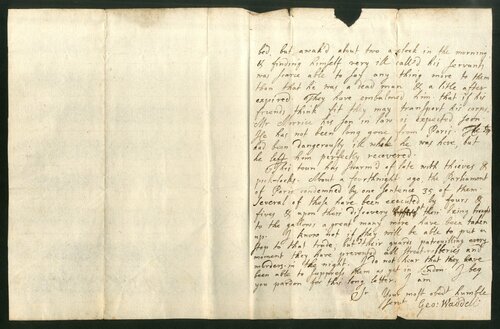 bed but awak'd about two a clock in the morning
& finding himself very ill call'd his servants
was scarce able to say any thing more to them
than that he was a dead man & a litle after
expired. They have embalmed him that if his
friends think fit they may transport his corps,
Mr Morrice his son in law is expected soon
He has not been long gone from Paris.
had been dangerously ill while he was here, but
he left him perfectly recovered.
This town has swarm'd of late with thieves &
pick-locks. About a forthnight ago, the Parliament
of Paris condemned by one sentence 35 of them
several of these have been executed by fours &
fives & upon their discovery their being brought
to the gallows a great many more have been taken
up. I know not if they will be able to put a
stop to that trade, but their guards patrouilling every
moment they have prevented all street robberies and
murders in the night. I do not hear that they have
been able to suppress them as yet in London. I beg
you pardon for this long letter. I am
Sr Your most obedt humble
servt Geo: Waddell